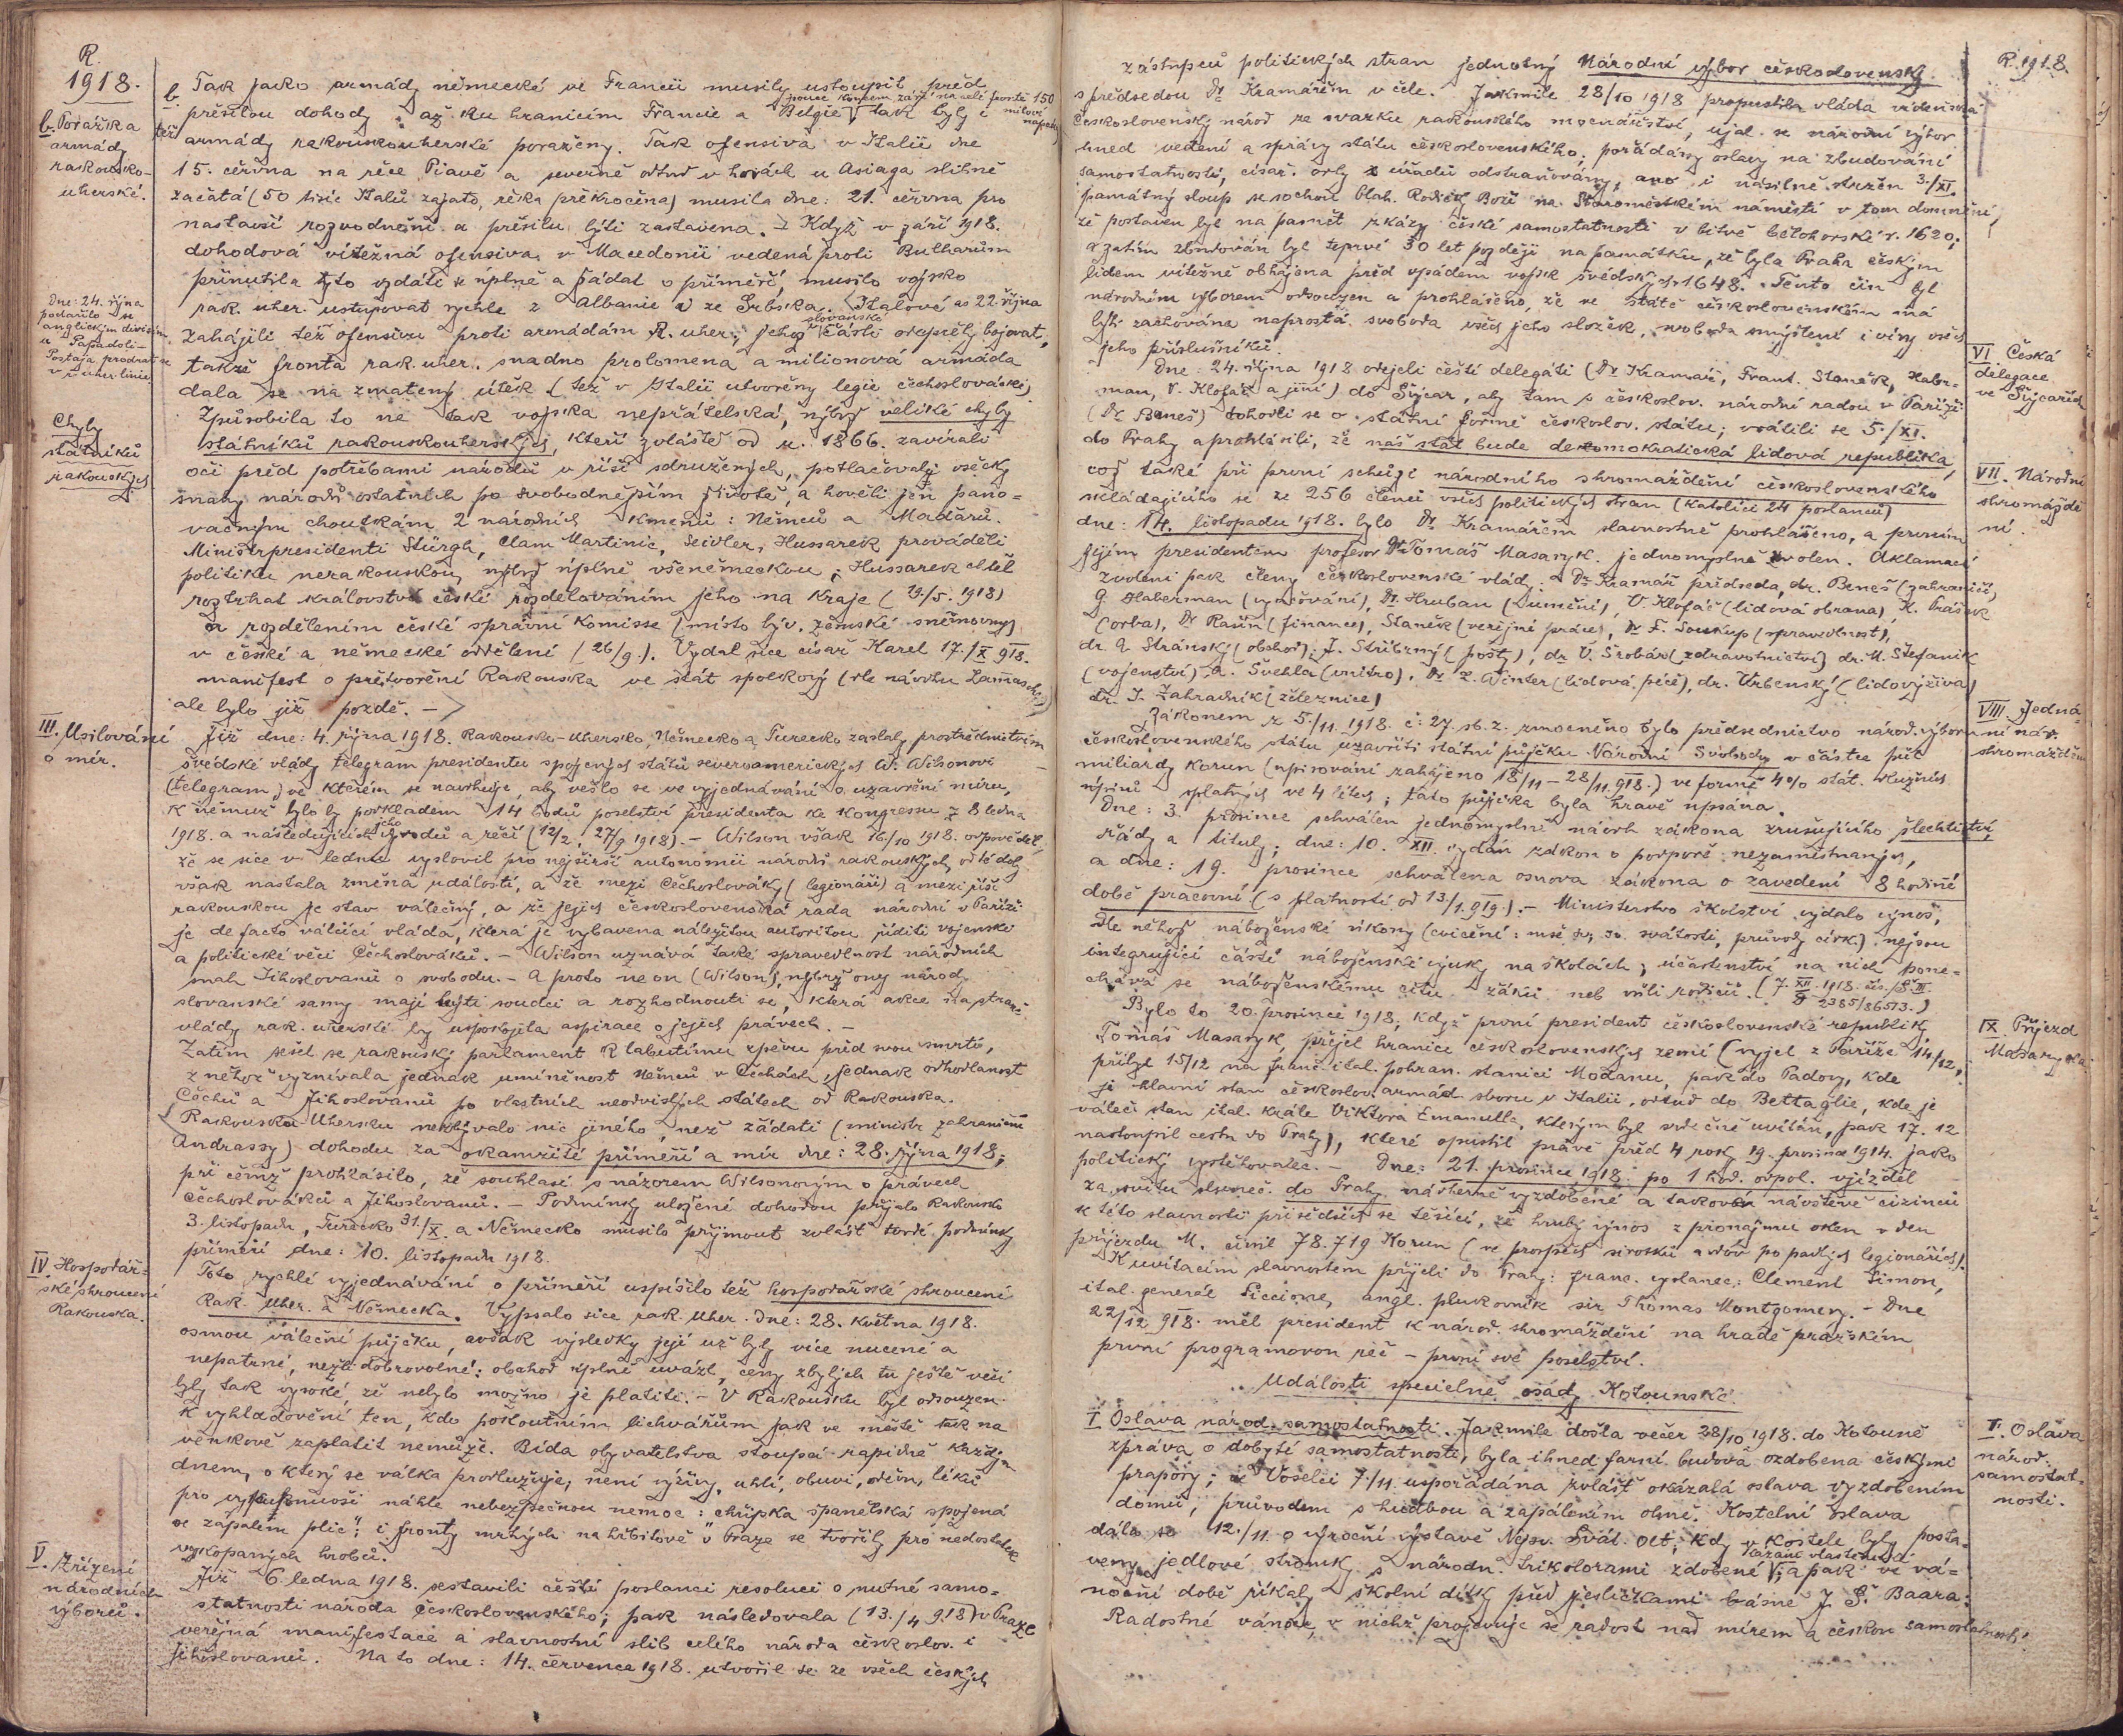 R.
1918.
b. Porážka
armády
rakousko-
uherské.
b. Tak jako armády německé ve Francii musily ustoupiti před
přesilou dohody až ku hranicím Francie a Belgie, tak byly i
pouze koncem září na celé frontě 150
též armády rakouskouherské poraženy. Tak ofensiva v Italii dne
15. června na řece Piavě a severně odtud v horách u Asiaga slibně
začatá (50 tisíc Italů zajato, řeka překročena) musila dne: 21. června pro
nastavší rozvodnění a přesilu býti zastavena. Když v září 1918.
dohodová vítězná ofensiva v Macedonii vedená proti Bulharům
přinutila tyto vzdáti se úplně a žádat o příměří, musilo vojsko
rak. uher. ustupovat rychle z Albanie a ze Srbska. Italové as 22 října
zahájili též ofensivu proti armádám R. uher., jehož slovanské části odepřely bojovat,
takže fronta rak. uher. snadno prolomena a milionová armáda
dala se na zmatený útěk (též v Italii utvořeny legie čechoslovácké)
Dne: 24. října
podařilo se
anglickým divisím
u Papadoli-
Způsobila to ne tak vojska nepřátelská, nýbrž veliké chyby
státníků rakouskouherských, kteří zvláště od r. 1866. zavírali
oči před potřebami národů v říši sdružených, potlačovaly všecky
snahy národů ostatních po svobodnějším životě, a hověli jen pano-
vačným choutkám 2 národních kmenů: Němců a Maďarů.
Chyby
státníků
rakouských
Ministrpresidenti Stürgh, Clam Martinic, Seidler, Hussarek prováděli
politiku nerakouskou, nýbrž úplně všeněmeckou; Hussarek chtěl
roztrhat království české rozdělováním jeho na kraje (19./5. 1918)
a rozdělením české správní komisse (místo býv. zemské sněmovny)
v české a německé oddělení (26/9.). Vydal sice císař Karel 17./X 918.
manifest o přetvoření Rakouska ve stát spolkový (dle návrhu Lammasche)
ale bylo již pozdě. –
III. Usilování
o mír.
Již dne: 4. října 1918. Rakousko-Uhersko, Německo a Turecko zaslaly prostřednictvím
švédské vlády telegram presidentu spojených států severoamerických W. Wilsonovi
(telegram) ve kterém se navrhuje, aby vešlo se ve vyjednávání o uzavření míru,
k němuž bylo by podkladem 14 bodů poselství presidenta ke kongressu z 8 ledna
1918. a následujících jeho vývodů a řečí (12/2, 27/9 1918). – Wilson však 16/10 1918. odpověděl,
že se sice v lednu vyslovil pro nejširší autonomii národů rakouských, od té doby
však nastala změna událostí, a že mezi Čechoslováky (legionáři) a mezi říší
rakouskou je stav válečný, a že jejich československá rada národní v Paříži
je de facto válčící vláda, která je vybavena náležitou autoritou říditi vojenské
a politické věci Čechoslováků. – Wilson uznává také spravedlnost národních
snah Jihoslovanů o svobodu. – A proto ne on (Wilson), nýbrž ony národy
slovanské samy mají býti soudci a rozhodnouti se, která akce na straně
vlády rak. uherské by uspokojila aspirace o jejich právech. –
Zatím sešel se rakouský parlament k labutímu zpěvu před svou smrtí,
z něhož vyznívala jednak umíněnost Němců v Čechách, jednak odhodlanost
Čechů a Jihoslovanů po vlastních neodvislých státech od Rakouska.
Rakousku Uhersku nezbývalo nic jiného, než žádati (ministr zahraničí
Andrassy) dohodu za okamžité příměří a mír dne: 28. října 1918;
při čemž prohlásilo, že souhlasí s názorem Wilsonovým o právech
Čechoslováků a Jihoslovanů. – Podmínky uložené dohodou přijalo Rakousko
3. listopadu, Turecko 31./X. a Německo musilo přijmout zvlášť tvrdé podmínky
příměří dne: 10. listopadu 1918.
IV. Hospodář-
ské zhroucení
Rakouska.
Toto rychlé vyjednávání o příměří uspíšilo též hospodářské zhroucení
Rak. Uher. a Německa. Vypsalo sice rak. uher. dne: 28. května 1918.
osmou váleční půjčku, avšak výsledky její už byly více nucené a
nepatrné, nežli dobrovolné: obchod úplně uvázl, ceny zbylých tu ještě věcí
byly tak vysoké, že nebylo možno je platiti. – V Rakousku byl odsouzen
k vyhladovění ten, kdo pokoutním lichvářům jak ve městě tak na
venkově zaplatit nemůže. Bída obyvatelstva stoupá rapidně každým
dnem, o který se válka prodlužuje, není výživy, uhlí, obuvi, oděvu, léků
pro vypuknuvší náhle nebezpečnou nemoc: chřipka španělská spojená
se zápalem plic"; i fronty mrtvých na hřbitově v Praze se tvořily pro nedostatek
vykopaných hrobců.
V. Zřízení
národních
výborů.
Již 6. ledna 1918. sestavili čeští poslanci resoluci o nutné samo-
statnosti národa Československého; pak následovala (13./4 918) v Praze
veřejná manifestace a slavnostní slib celého národa českoslov. i
Jihoslovanů. Na to dne: 14. července 1918. utvořil se ze všech českých
R. 1918.
zástupců politických stran jednotný Národní výbor československý
s předsedou Dr Kramářem v čele. Jakmile 28/10 1918 propustila vláda vídeňská
československý národ ze svazku rakouského mocnářství, ujal se národní výbor
hned vedení a správy státu československého; pořádány oslavy na zbudování
samostatnosti, císař. orly z úřadů odstraňovány, ano i násilně stržen 3./XI.
památný sloup se sochou blah. Rodičky Boží na Staroměstském náměstí v tom domnění,
že postaven byl na paměť zkázy české samostatnosti v bitvě bělohorské r. 1620;
a zatím zbudován byl teprvé 30 let později na památku, že byla Praha českým
lidem vítězně obhájena před vpádem vojsk švédských r. 1648. Tento čin byl
národním výborem odsouzen a prohlášeno, že ve státě československém má
býti zachována naprostá svoboda všech jeho složek, svoboda smýšlení i víry všech
jeho příslušníků.
VI Česká
delegace
ve Švýcařích
Dne: 24. října 1918 odejeli čeští delegáti (Dr Kramář, Frant. Staněk, Haber-
man, V. Klofáč a jiní) do Švýcar, aby tam s českoslov. národní radou v Paříži
(Dr Beneš) dohodli se o státní formě českoslov. státu; vrátili se 5./XI.
do Prahy a prohlásili, že náš stát bude demokratická lidová republika,
což také při první schůzi národního shromáždění československého
skládajícího se ze 256 členů všech politických stran (katolíci 24 poslanců)
dne: 14. listopadu 1918. bylo Dr. Kramářem slavnostně prohlášeno, a prvním
jejím presidentem profesor Dr Tomáš Masaryk jednomyslně zvolen. Aklamací
VII. Národní
shromáždě
ní.
zvoleni pak členy československé vlády: Dr Kramář předseda, dr. Beneš (zahraničí),
G. Haberman (vyučování), Dr. Hruban (Jmění), V. Klofáč (lidová obrana), K. Prášek
(orba), Dr Rašín (finance), Staněk (veřejné práce), Dr F. Soukup (spravedlnost),
dr. A. Stránský (obchod), J. Stříbrný (pošty), dr V. Šrobár (zdravotnictví) dr. M. Štefanik
(vojenství) A. Švehla (vnitro), Dr L. Winter (lidová péče), dr. Vrbenský (lidovýživa)
dr. I. Zahradník (železnice)
VIII. Jedná-
ní nár.
shromáždění
Zákonem z 5./11. 1918. č: 27. sb. z. zmocněno bylo předsednictvo národ. výboru
československého státu uzavříti státní půjčku Národní Svobody v částce pět
miliardy korun (upisování zahájeno 18/11 – 28/11 918.) ve formě 4% stát. dlužních
úpisů splatných ve 4 letech; tato půjčka byla hravě upsána.
Dne: 3. prosince schválen jednomyslně návrh zákona zrušujícího šlechtictví,
řády a tituly; dne: 10. XII. vydán zákon o podpoře nezaměstnaných,
a dne: 19. prosince schválena osnova zákona o zavedení 8 hodiné
době pracovní (s platností od 13/1. 919.). – Ministerstvo školství vydalo výnos,
dle něhož náboženské úkony (cvičení: mše sv., sv. svátosti, průvody círk.) nejsou
integrující částí náboženské výuky na školách; účastenství na nich pone-
chává se náboženskému citu žáků neb vůli rodičů.
IX Příjezd
Masaryka
Bylo to 20. prosince 1918, když první president československé republiky
Tomáš Masaryk přejel hranice československých zemí (vyjel z Paříže 14/12,
přibyl 15/12 na franc. ital. pohran. stanici Modanu, pak do Padovy, kde
je hlavní stan českoslov. armád. sboru v Italii, odtud do Bettaglie, kde je
váleč. stan ital. krále Viktora Emanuela, kterým byl srdečně uvítán, pak 17. 12
nastoupil cestu do Prahy), které opustil právě před 4 roky 19. prosince 1914. jako
politický vystěhovalec. – Dne: 21. prosince 1918. po 1 hod. odpol. vjížděl
za svitu sluneč. do Prahy nádherně vyzdobené a takové návštěvě cizinců
k této slavnosti přišedších se těšící, že hrubý výnos z pronájmu oken v den
příjezdu M. činil 78.719 Korun (ve prospěch sirotků a vdov po padlých legionářích).
K uvítacím slavnostem přijeli do Prahy: franc. vyslanec: Clement Simon,
ital. generál Piccione, angl. plukovník sir Thomas Montgomery. – Dne
22/12 918. měl president k národ. shromáždění na hradě pražském
první programovou řeč – první své poselství.
Události specielně osady Kotounské.
I. Oslava
národ.
samostat-
nosti.
I Oslava národ. samostatnosti. Jakmile došla večer 28/10 1918. do Kotouně
zpráva o dobytí samostatnosti, byla ihned farní budova ozdobena českými
prapory; u Voselci 7/11 uspořádána zvlášť okázalá oslava vyzdobením
domů, průvodem s hudbou a zapálením ohně. Kostelní oslava
dála se 12./11 o výroční výstavě Nejsv. Svát. Olt., kdy v kostele byly posta-
veny jedlové stromky s národn. trikolorami zdobené, a pak ve vá-
noční době říkaly školní dítky před jesličkami báseň J. Š. Baara:
Radostné vánoce, v nichž projevuje se radost nad mírem a českou samostatností.